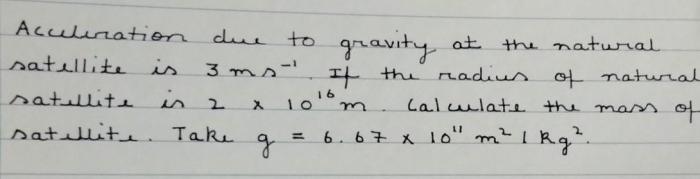 Acceleration due to gravity at the natural
satellite is 3 ms⁻¹. If the radius of natural
satellite is 2 x 10¹⁶ m. Calculate the mass of
satellite. Take g = 6.67 x 10¹¹ m² / kg².